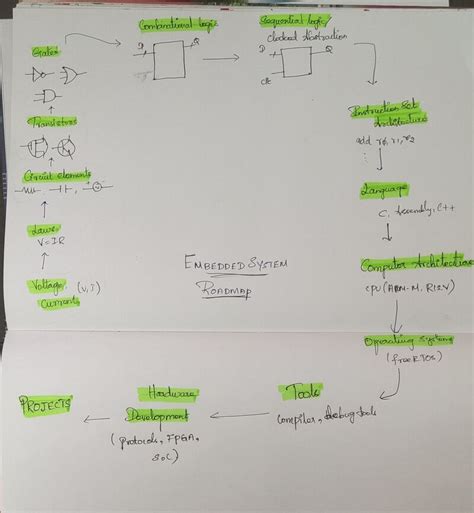 Combinational logic
Sequential logic
Clocked Abstraction
Gates
D
Q
D
Q
Clk
Transistors
Instruction Set
Architecture
add r0, r1, r2
Circuit elements
Language
C, Assembly, C++
Laws
V=IR
Computer Architecture
CPU (ARM-M, RISCV)
EMBEDDED SYSTEM
ROADMAP
Voltage, (V, I)
Current
Operating System
(freeRTOS)
Tools
Compiler, debug tools
Hardware
Development
(protocols, FPGA,
SoC)
PROJECTS